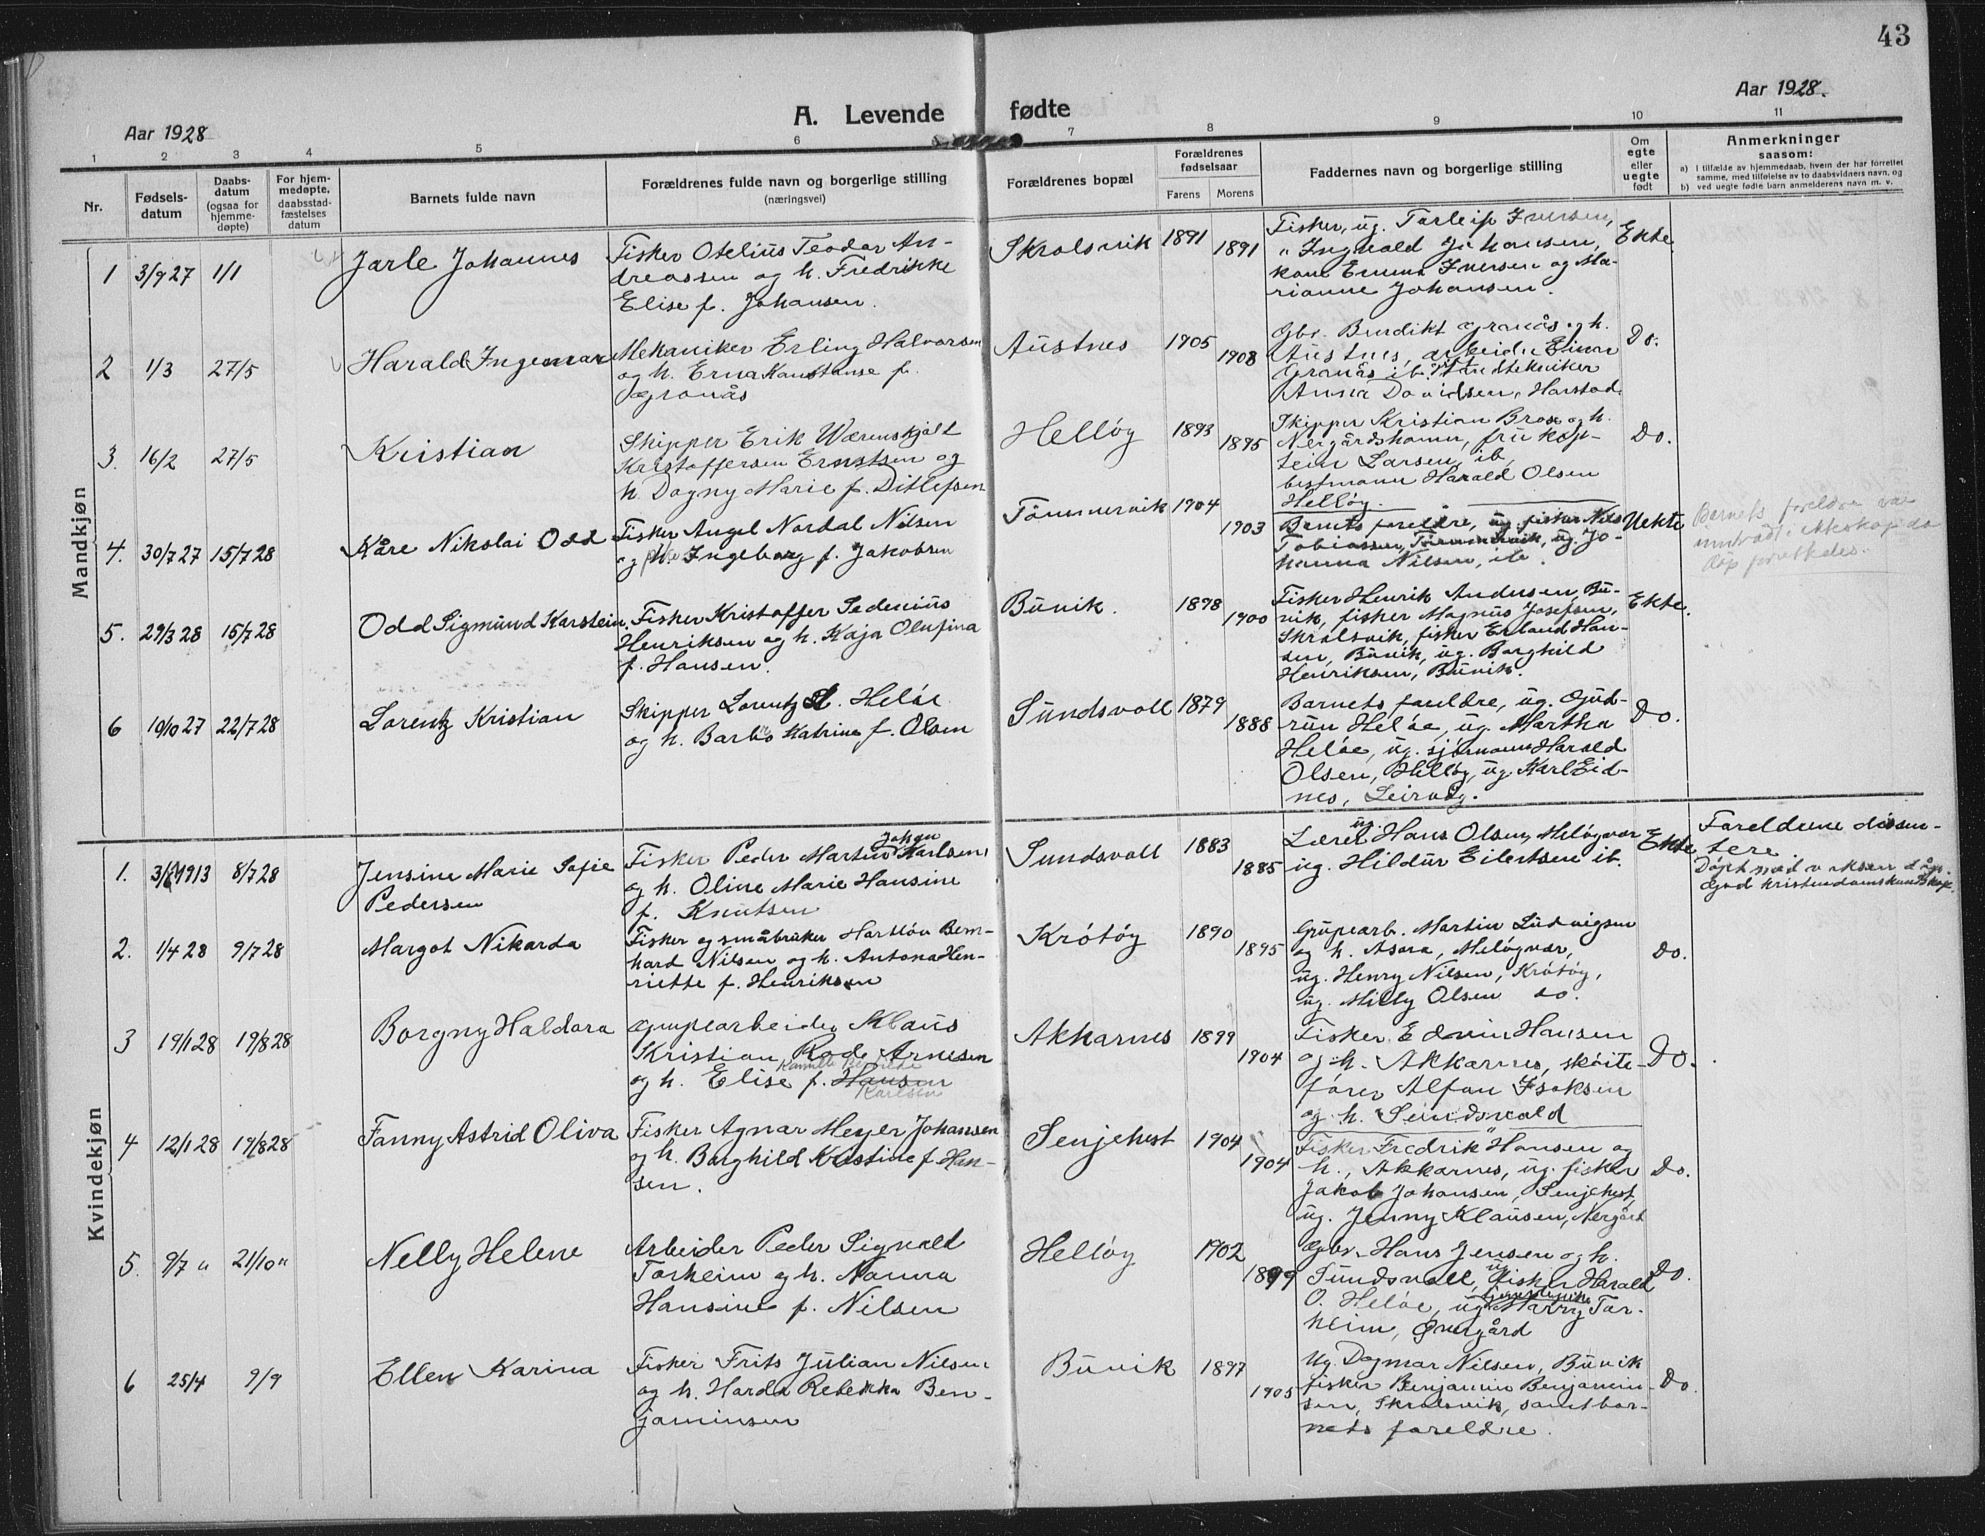 43
Aar 1928
A. Levende fødte
Aar 1928.
1 2 3 4 5 6 7 8 9 10 11
Nr.
Fødsels-
datum
Daabs-
datum
(ogsaa for
hjemme-
døpte)
For hjem-
medøpte,
daabsstad-
fæstelses
datum
Barnets fulde navn
Forældrenes fulde navn og borgerlige stilling
(næringsvei)
Forældrenes bopæl
Forældrenes
fødselsaar
Farens Morens
Faddernes navn og borgerlige stilling
Om
egte
eller
uegte
født
Anmerkninger
saasom:
a) I tilfælde av hjemmedaab, hvem der har forrettet
samme, med tilføielse av to daabsvidners navn, og
b) ved uegte fødte barn anmelderens navn m. v.
Mandkjøn
1 3/9 27 1/1
Jarle Johannes
Fisker Otelius Teodor An-
dreassen og h. Fredrikke
Elise f. Johansen.
Skrolsvik 1891 1891
Fisker, ug. Torleif Iversen,
" Ingvald Johansen,
kone Emma Iversen og Ma-
rianne Johansen.
Ekte
2 1/3 27/5
Harald Ingemar
Mekaniker Erling Halvorsen
og h. Erna Konstanse f.
Granås
Austnes 1905 1908
Gbr. Bendikt Granås og h.
Austnes, arbeider Einar
Granås ib. Tandtekniker
Anna Davidsen, Harstad
Do.
3. 16/2 27/5
Kristian
Skipper Erik Wærenskjolt
Kristoffersen Ernstsen og
h. Dagny Marie f. Ditlefsen
Helløy 1893 1895
Skipper Kristian Brox og h.
Nergårdshamn, fru kap-
tein Larsen ib,
bestmann Harald Olsen
Helløy.
Do.
4. 30/7 27 15/7 28
Kåre Nikolai Odd
Fisker Angel Nordal Nilsen
og h. Ingeborg f. Jakobsen
Tömmervik 1904 1903
Barnets foreldre, ug. fisker Nils
Tobiassen, Tömmervik, ug. Jo-
hanna Nilsen, ib.
Uekte
Barnets foreldre var
inntrådt i ekteskap da
dåp forettedes.
5. 29/3 28 15/7 28
Odd Sigmund Karstein.
Fisker Kristoffer Sedenius
Henriksen og h. Kaja Olufina
f. Hansen.
Buvik. 1898 1900
Fisker Henrik Andersen, Bu-
vik, fisker Magnus Josefsen,
Skrolsvik, fisker Erland Han-
sen, Buvik, ug. Borghild
Henriksen, Buvik.
Ekte.
6 19/10 27 22/7 28
Lorentz Kristian
Skipper Lorentz Heløe
og h. Barbo Katrine f. Olsen
Sundsvoll 1879 1888
Barnets foreldre, ug. Gud-
run Heløe, ug. Martha
Heløe, ug. sjømann Harald
Olsen, Helløy, ug. Karl Eid-
nes, Leirvåg.
Do.
Kvindekjøn
1. 1913 8/7 28
Jensine Marie Sofie
Pedersen
Johan
Fisker Peder Martin Karlsen
og h. Oline Marie Hansine
f. Knutsen
Sundsvoll 1883 1885
ug.
Lærer Hans Olsen, Meløyvær
ug. Hildur Eilertsen ib.
Ekte
Foreldrene dissen-
tere
Døpt med voksen dåp.
God kristendomskundskap.
2. 1/4 28 9/7 28
Margot Nikarda
Fisker og småbruker Hartløv Bern-
hard Nilsen og h. Antona Hen-
riette f. Henriksen
Krötöy 1890 1895
Grupearb. Martin Ludvigsen
og h. Asora, Meløyvær,
ug. Henry Nilsen, Krötöy,
ug. Milly Olsen do.
Do.
3 19/1 28 19/8 28
Borgny Haldora
Grupearbeider Klaus
Kristian Rode Arnesen
og h. Elise f. Hansen
Karlsen
Akkarnes 1899 1904
Fisker Edvin Hansen
og h. Akkarnes, skøite-
fører Alfon Isaksen
og h. Sundsvold
Do.
4 12/1 28 19/8 28
Fanny Astrid Oliva
Fisker Agnar Meyer Johansen
og h. Borghild Kristine f. Han-
sen.
Senjehest 1904 1904
Fisker Fredrik Hansen og
h., Akkarnes, ug. fisker
Jakob Johansen, Senjehest,
ug. Jenny Klausen, Nergård
Do.
5. 9/7 " 21/10 "
Nelly Helene
Arbeider Peder Sigvald
Torheim og h. Nanna
Hansine f. Nilsen
Helløy 1902 1899
Gbr. Hans Jensen og h.
Sundsvoll, ug. fisker Harald
O. Heløe, ug. Harry Tor-
heim, Øvergård
Do.
6 25/4 9/9
Ellen Karina
Fisker Frits Julian Nilsen
og h. Harda Rebekka Ben-
jaminsen
Buvik 1897 1905
Ug. Dagmar Nilsen, Buvik
fisker Benjamin Benjamin-
sen, Skrolsvik, samt bar-
nets foreldre.
Do.